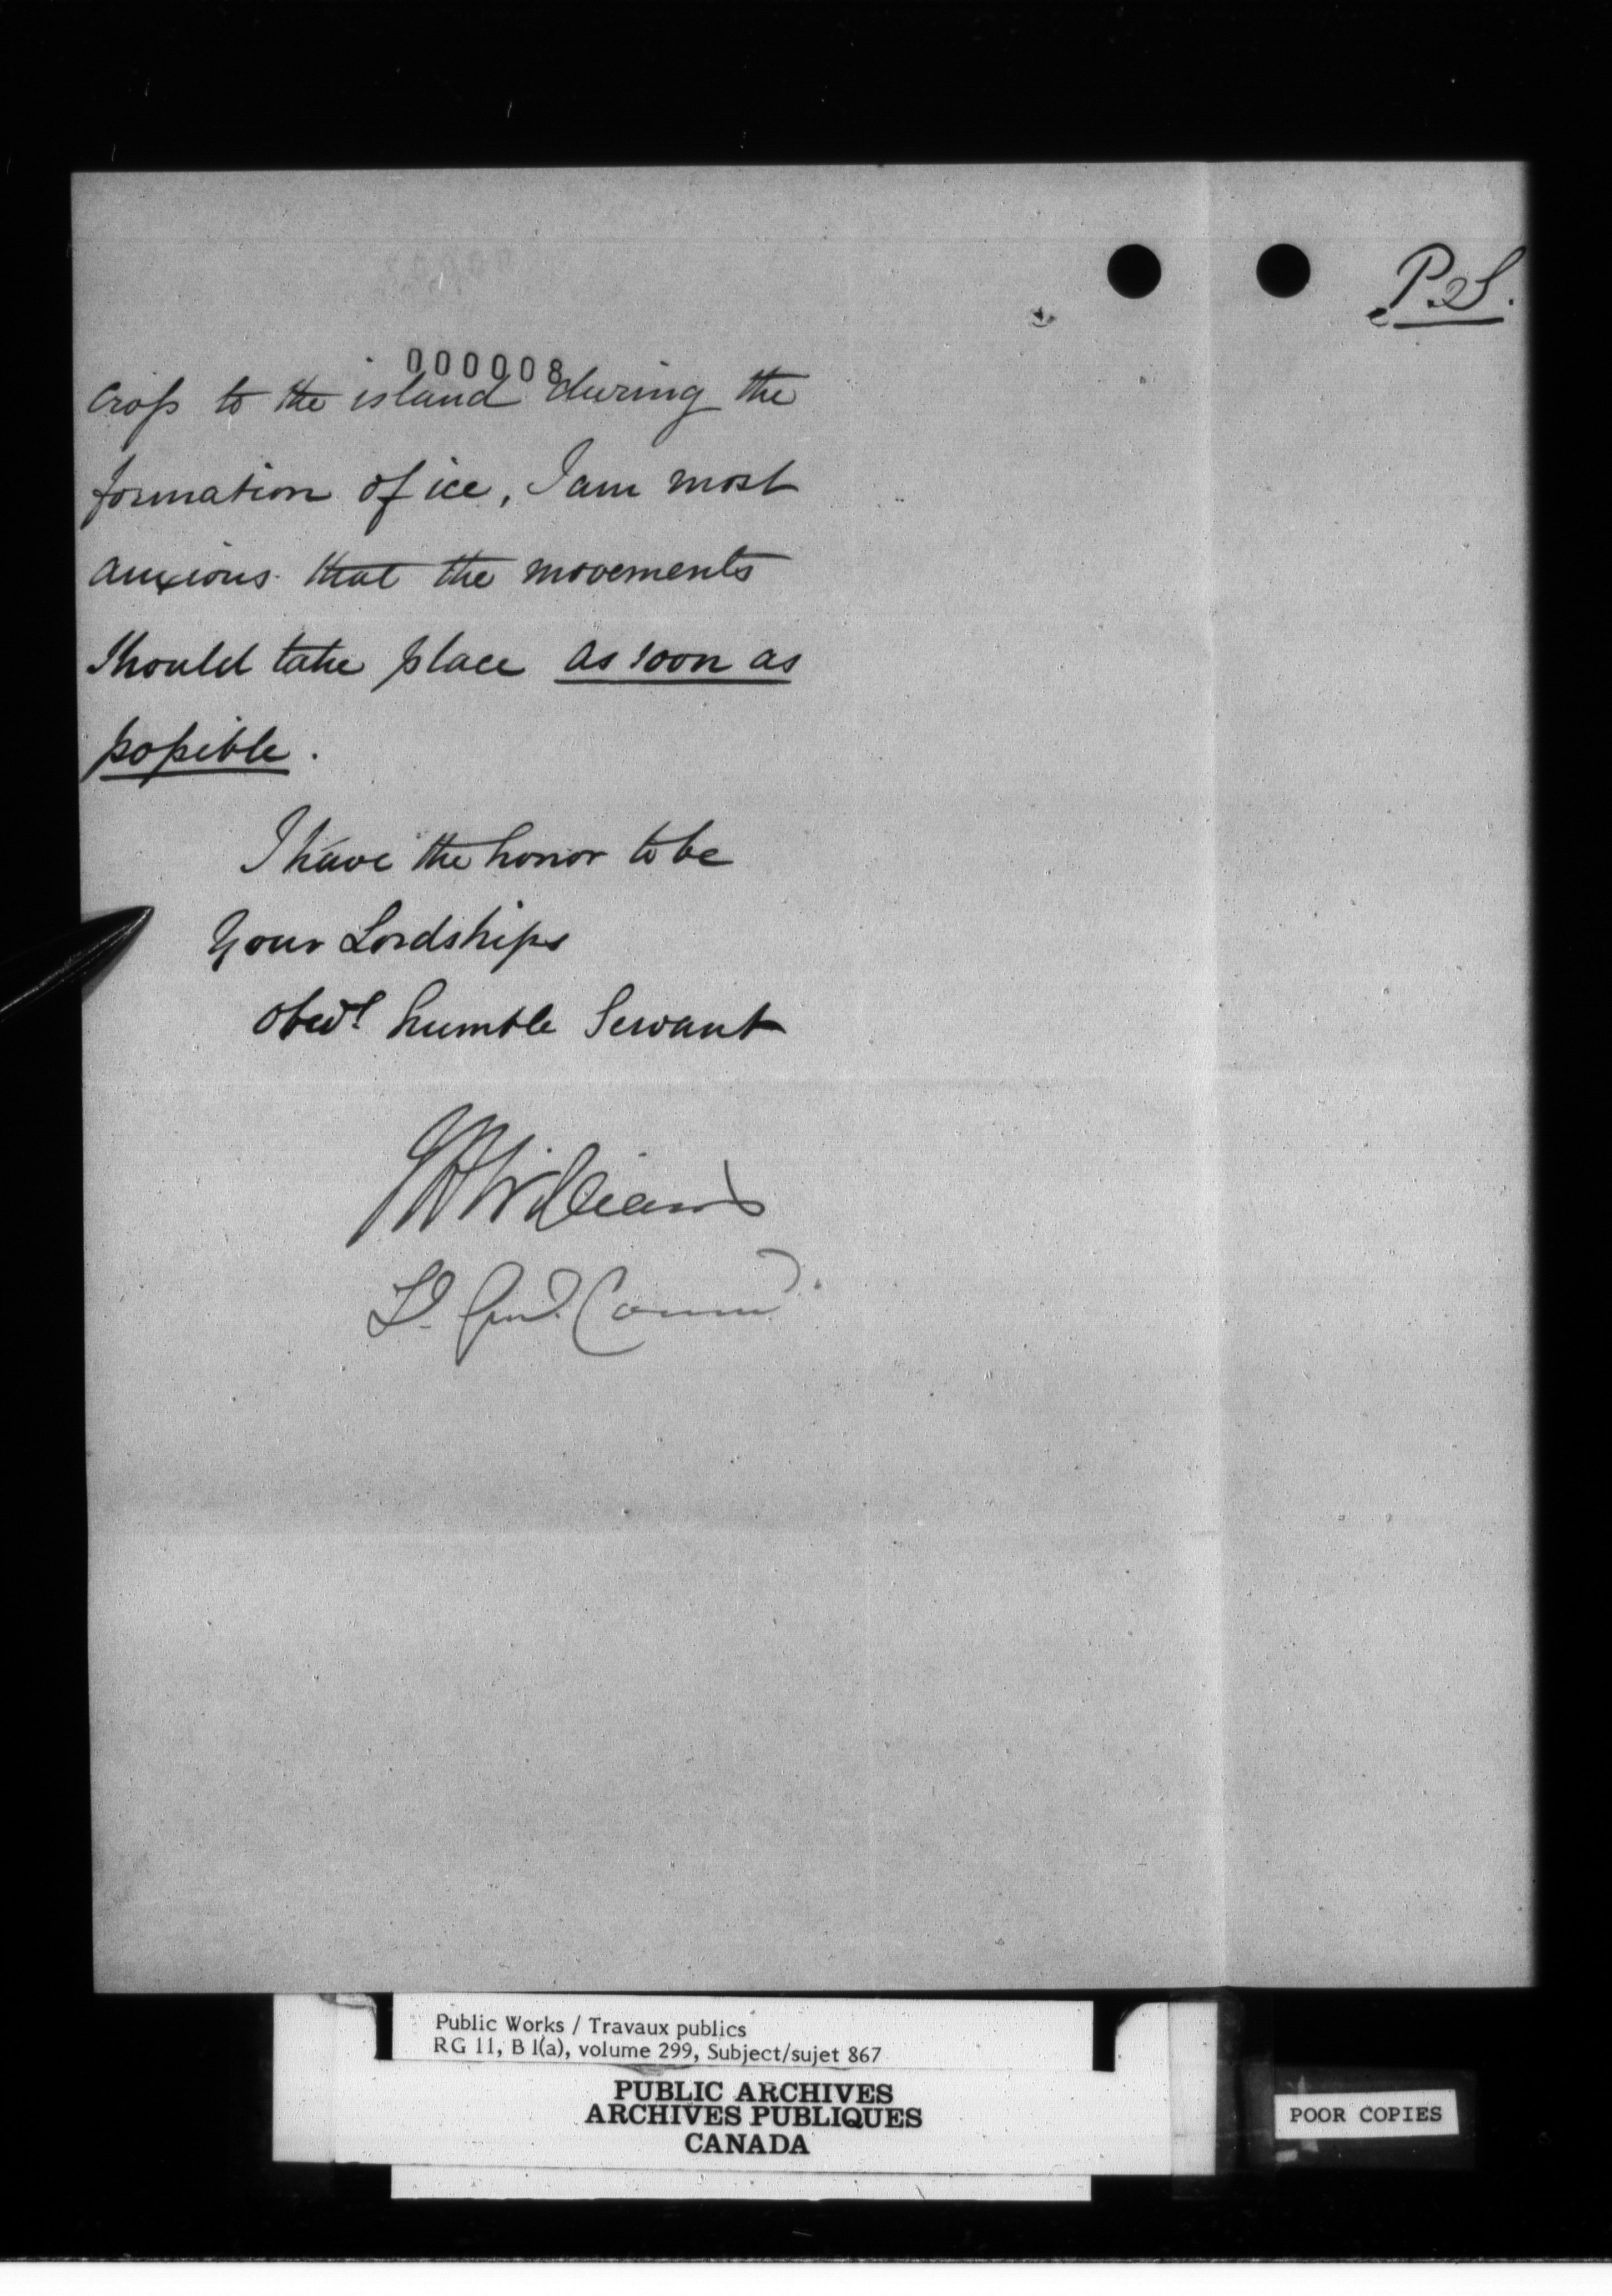 P.2S.
000008
cross to the island during the
formation of ice, I am most
anxious that the movements
should take place as soon as
possible.
I have the honor to be
Your Lordships
Obedt humble Servant
Williams
Lt. Genl. Commd.
Public Works / Travaux publics
RG 11, B 1(a), volume 299, Subject/sujet 867
PUBLIC ARCHIVES
ARCHIVES PUBLIQUES
CANADA
POOR COPIES